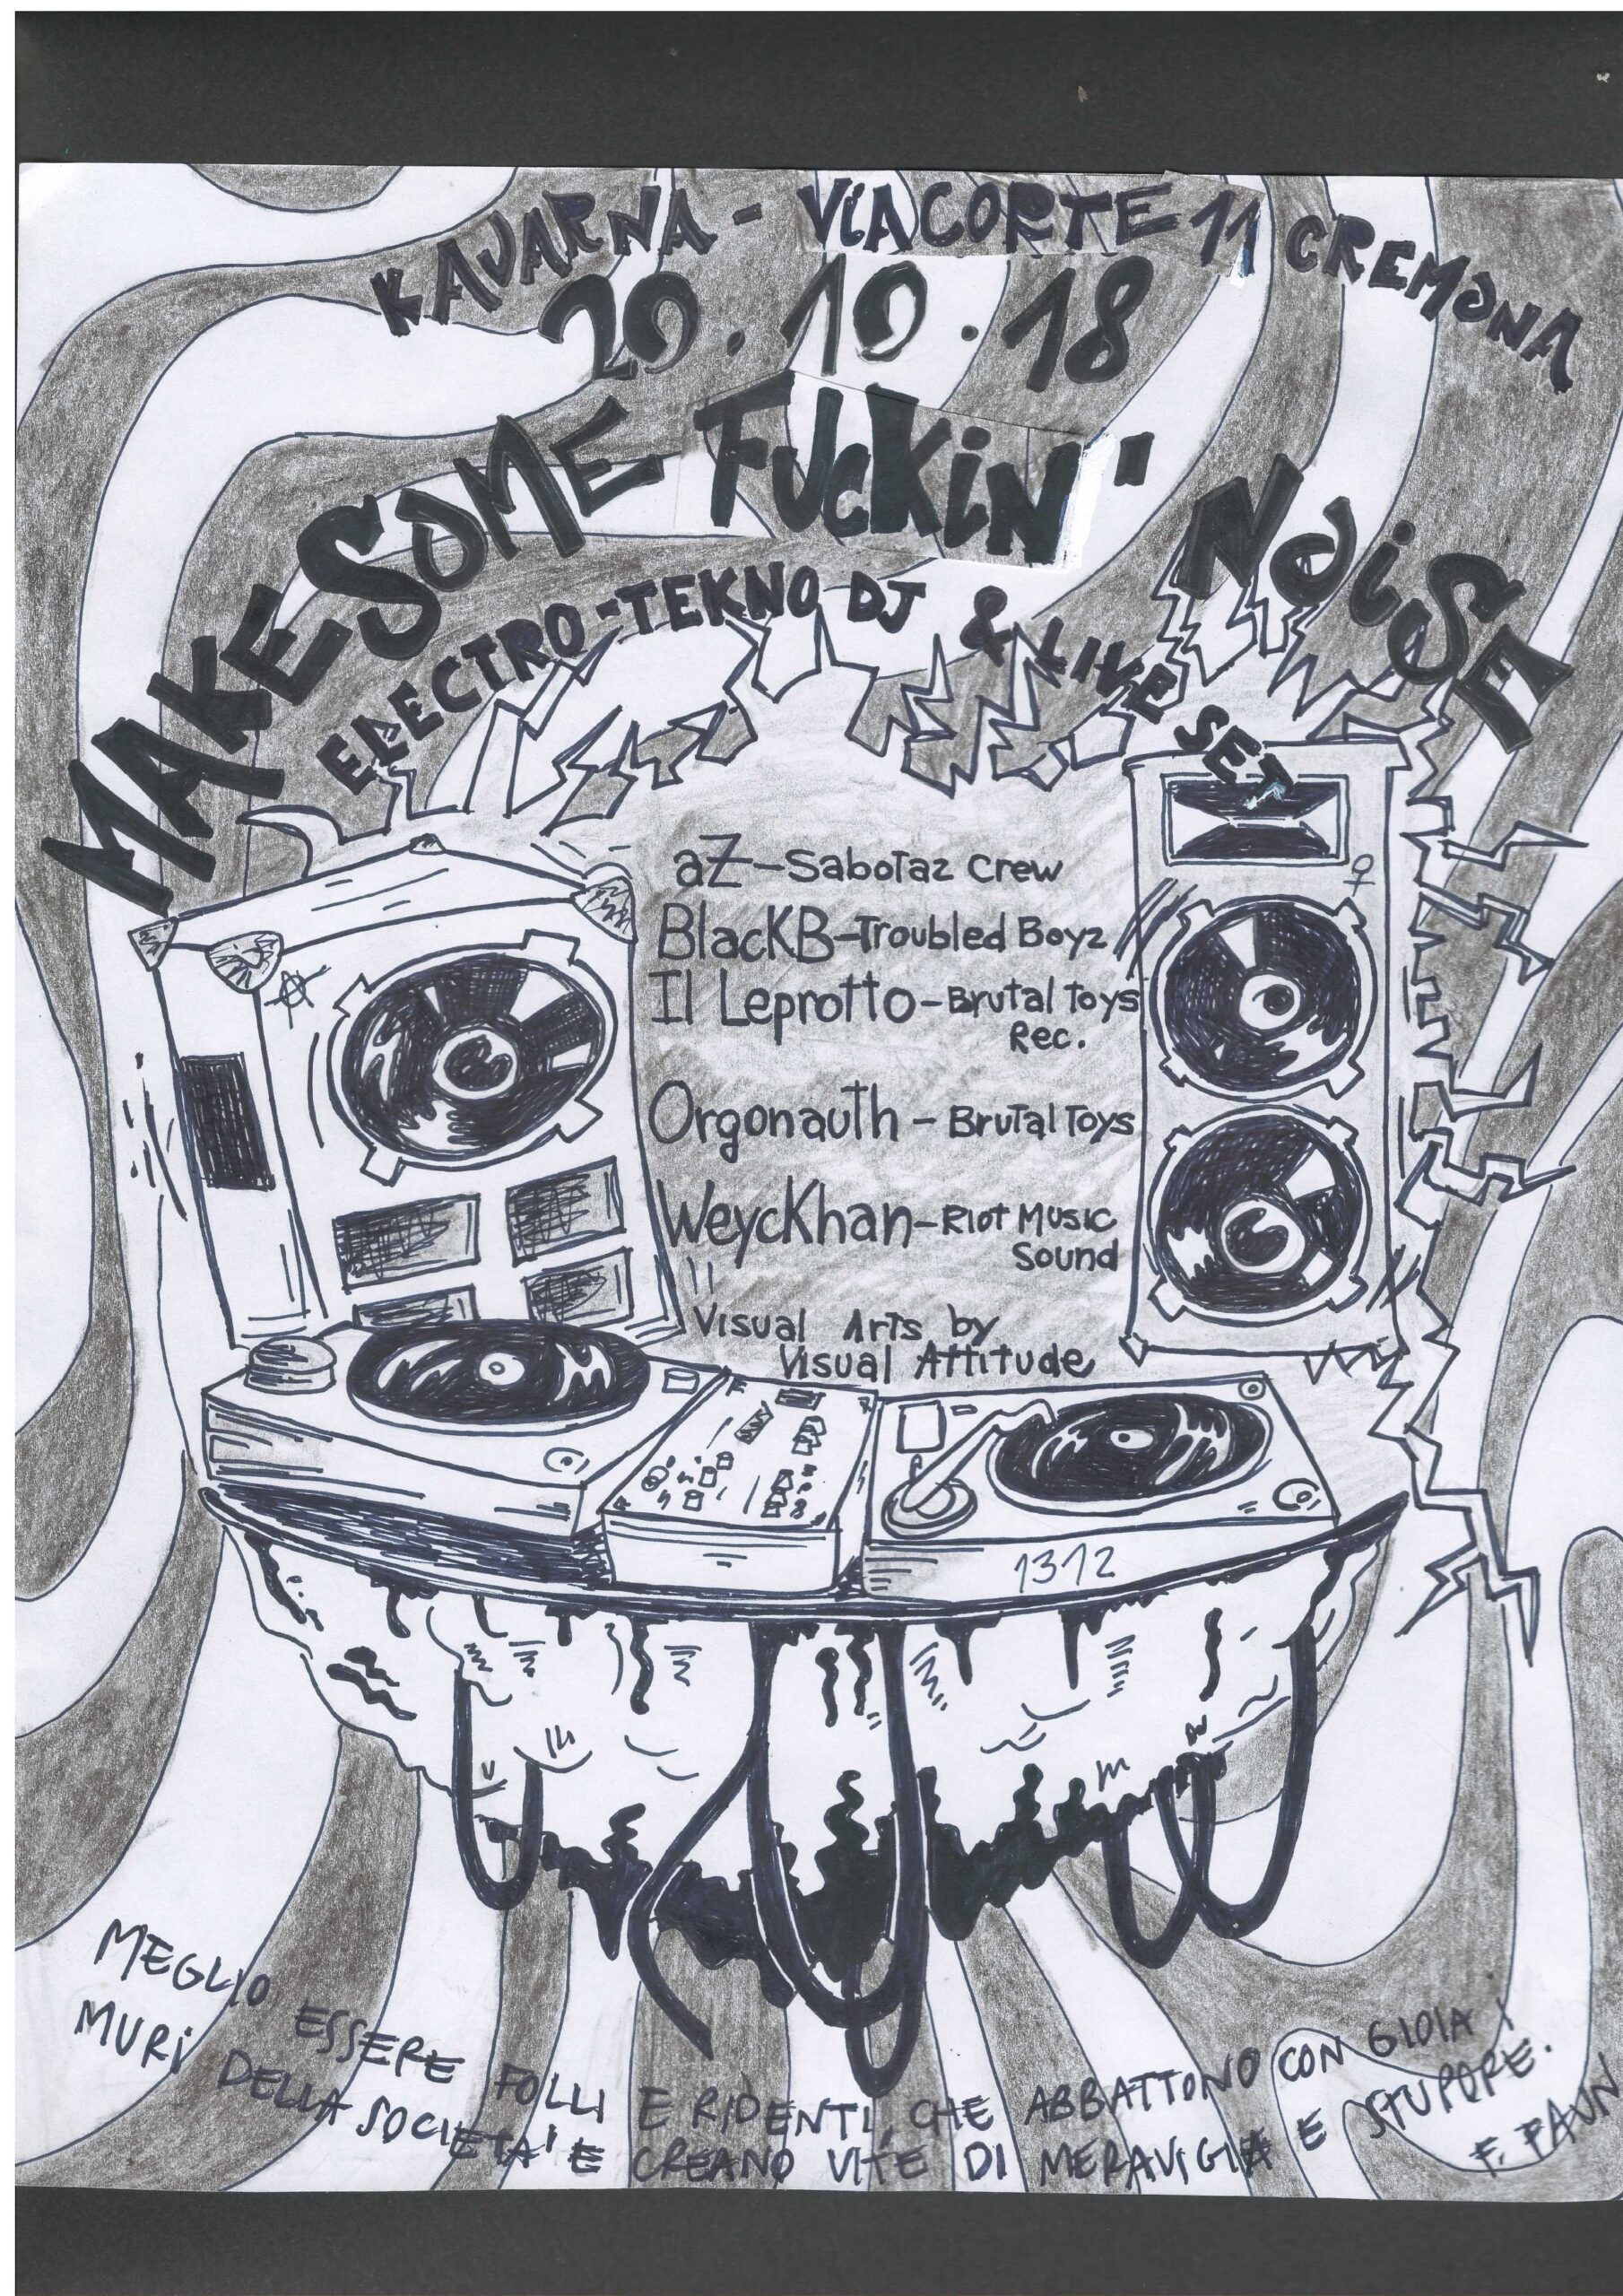 KAVARNA - VIA CORTE 11 CREMONA
20.10.18
MAKE SOME FUCKIN' NOISE
ELECTRO-TEKNO DJ & LIVE SET
aZ-Sabotaz Crew
BlacKB-Troubled Boyz
Il Leprotto-Brutal Toys
Rec.
Orgonauth-Brutal Toys
WeycKhan-Riot Music
Sound
Visual Arts by
Visual Attitude
1312
MEGLIO ESSERE FOLLI E RIDENTI, CHE ABBATTONO CON GIOIA I
MURI DELLA SOCIETA' E CREANO VITE DI MERAVIGIA E STUPORE.